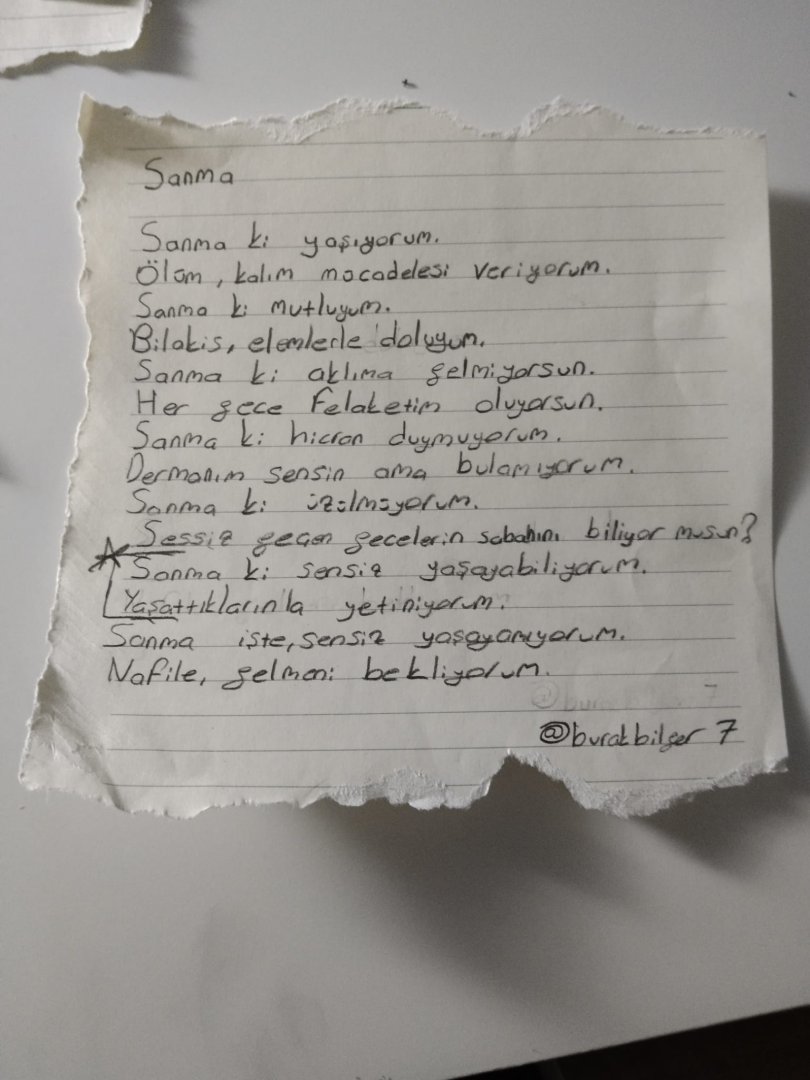 Sanma
Sanma ki yaşıyorum.
Ölüm, kalım mücadelesi veriyorum.
Sanma ki mutluyum.
Bilakis, elemlerle doluyum.
Sanma ki aklıma gelmiyorsun.
Her gece felaketim oluyorsun.
Sanma ki hicran duymuyorum.
Dermanım sensin ama bulamıyorum.
Sanma ki üzülmüyorum.
Sessiz geçen gecelerin sabahını biliyor musun?
Sanma ki sensiz yaşayabiliyorum.
Yaşattıklarınla yetiniyorum.
Sanma işte, sensiz yaşayamıyorum.
Nafile, gelmeni bekliyorum.
@burakbilger7